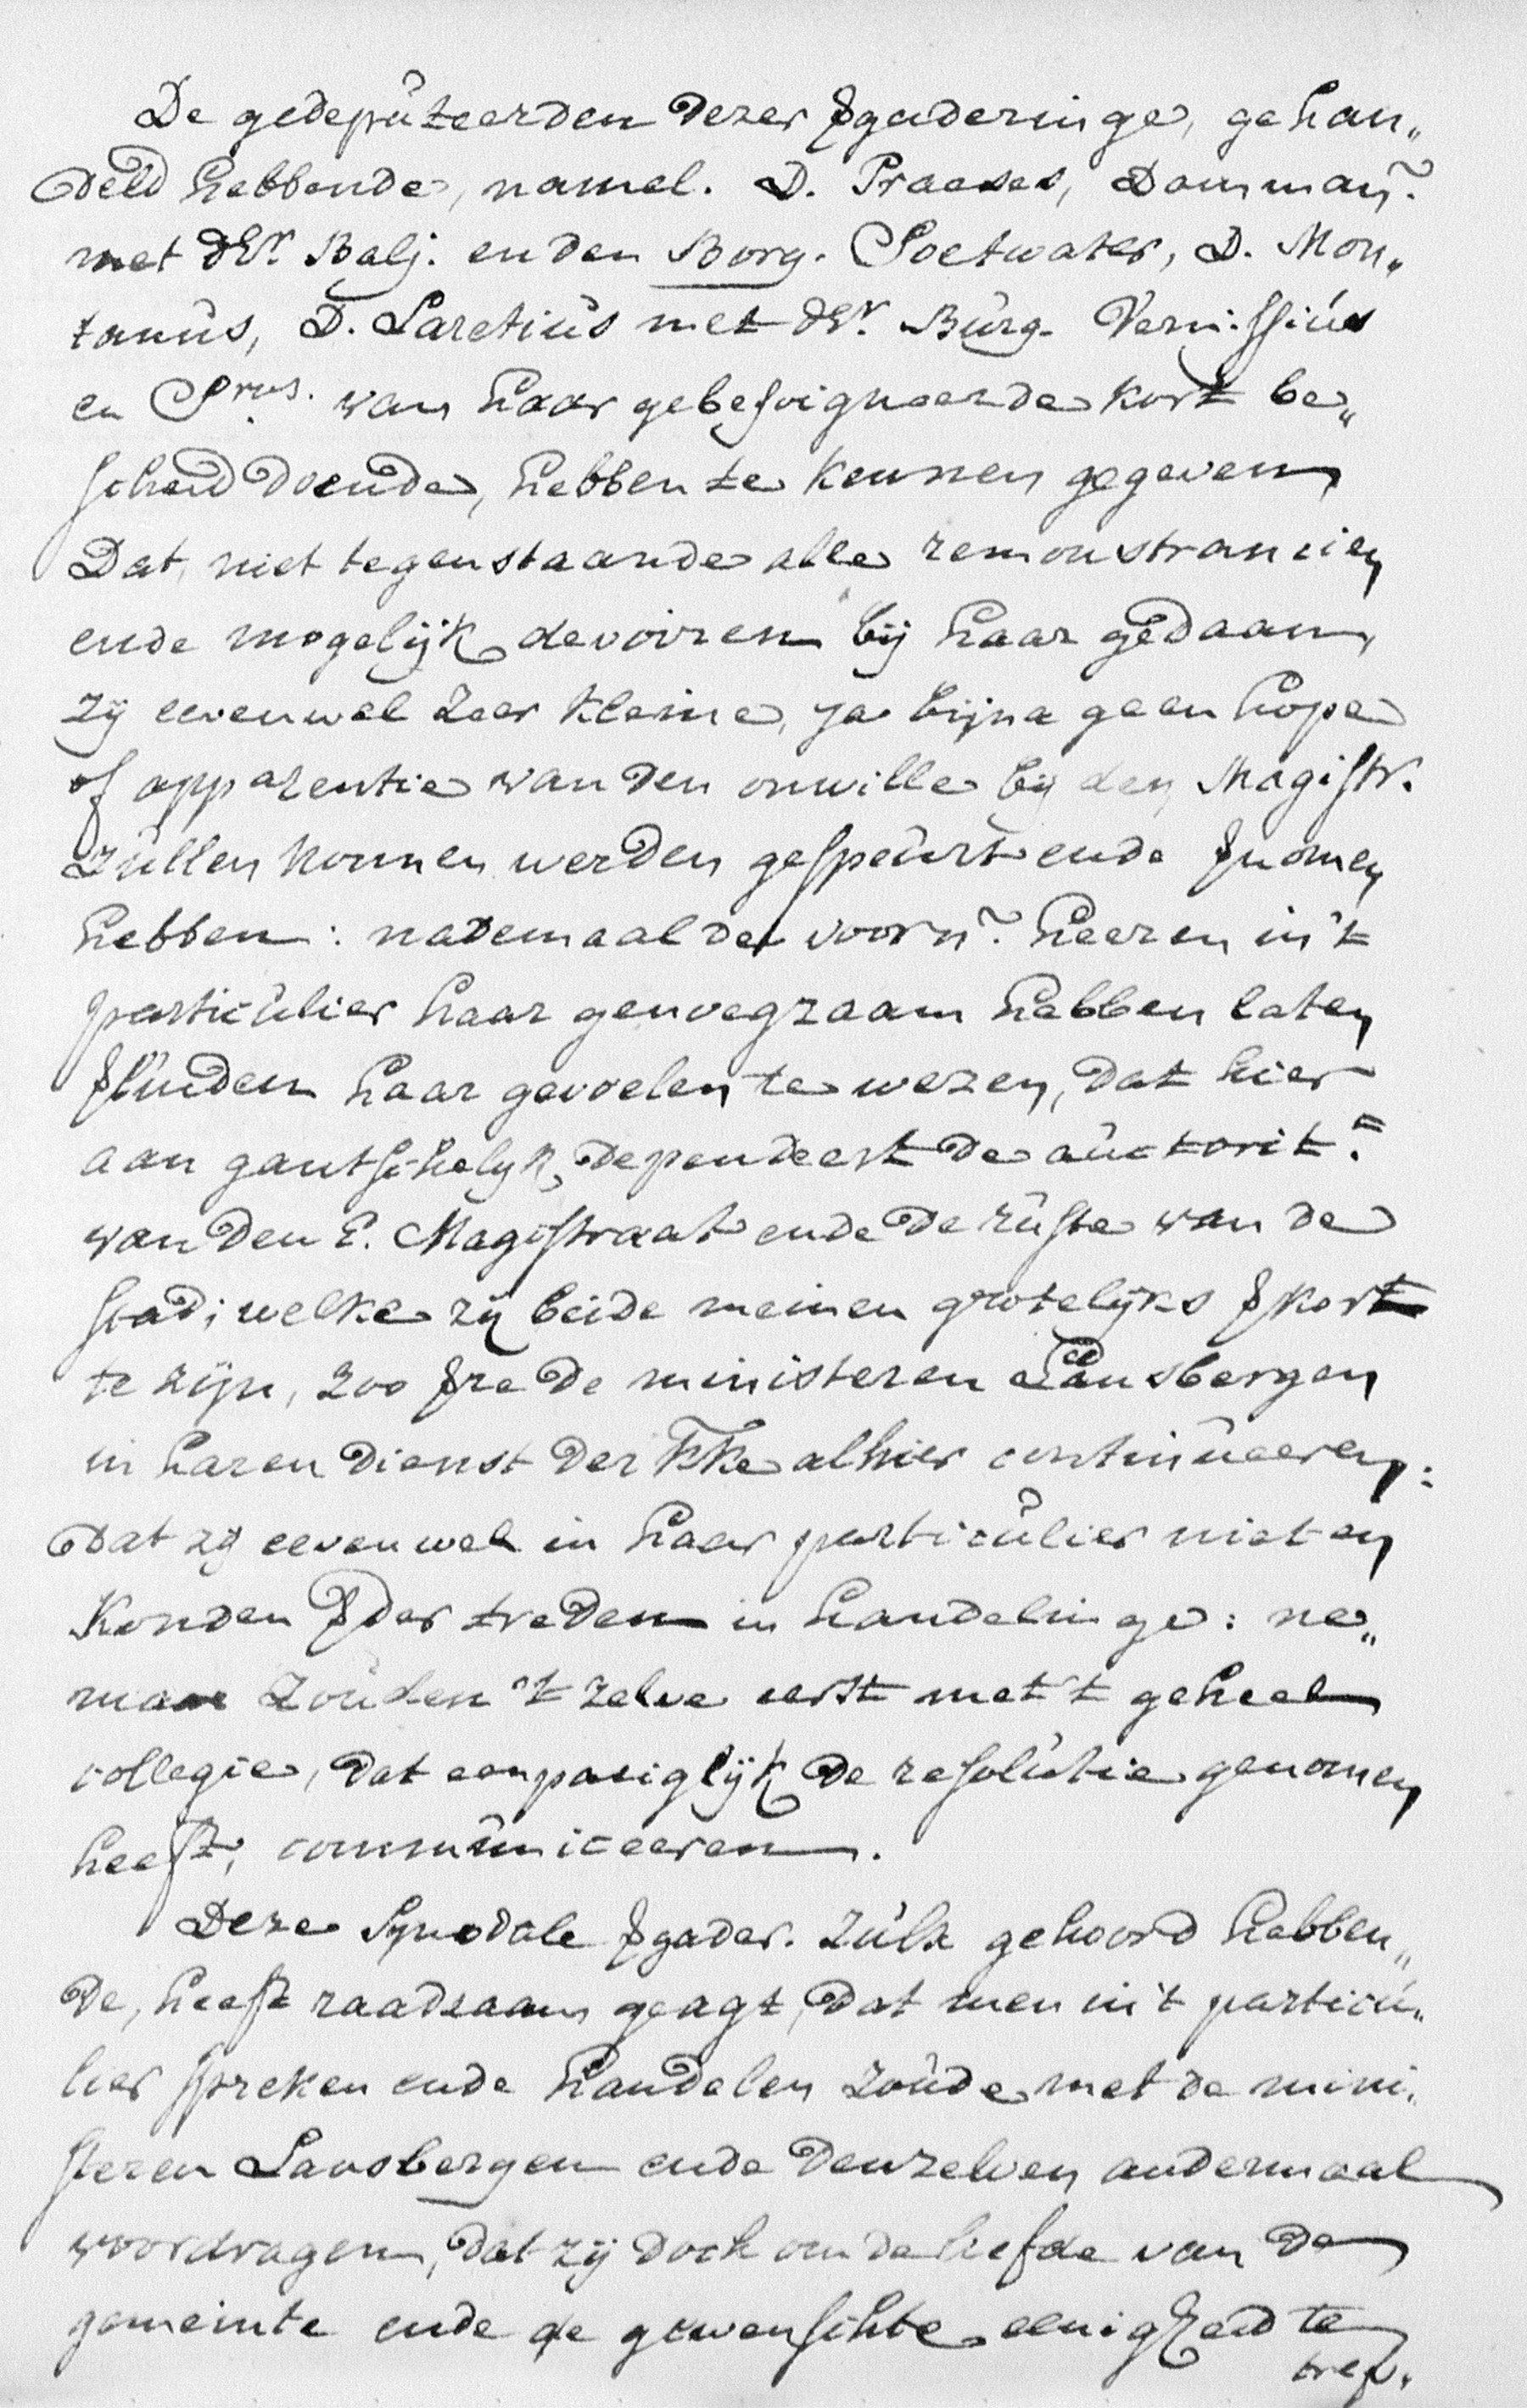 De gedeputeerden dezer vgaderinge, gehan„
deld hebbende, namel. D. Praeses, Damman.
met dEr. Balj. en den Borg. Soetwater, D. Mon„
tanus, D. Laretius met dEr. Burg. Vernissius
en van haar gebesoigneerde kort be„
scheid doende, hebben te kennen gegeven
Dat, niet tegenstaande alle remonstrancien
ende mogelijk devoiren bij haar gedaan,
zy eevenwel zeer kleine, ja bijna geen hope
of apparentie van den onwille bij den Magistr.
zullen konnen werden gespeurt ende vnomen
hebben: nademaal de voorn. heeren in't
particulier haar genoegzaam hebben laten
vluiden haar gevoelen te wezen, dat hier
aan gantschelyk dependeert de auctorit.
van den E. Magistraat ende de ruste van de
stad; welke zij beide meinen grotelijks vkort
te zijn, zoo vre de ministeren Lansbergen
in haren dienst der kke alhier continueeren:
Dat zij eevenwel in haar particulier niet en
konden vder treden in handelinge: ne„
maar zouden 't zelve eerst met 't geheel
collegie, dat eenpaeiglijk de resolutie genomen
heeft, communiceeren.
Deze Synodale vgader. zulx gehoord hebben„
de, heeft raadzaam geagt, dat men in't particu„
lier spreken ende handelen zoude met de mini„
steren Lansbergen ende denzelven andermaal
voordragen, dat zij doch om de liefde van de
gemeinte ende de gewenschte eenigheid te
tref.